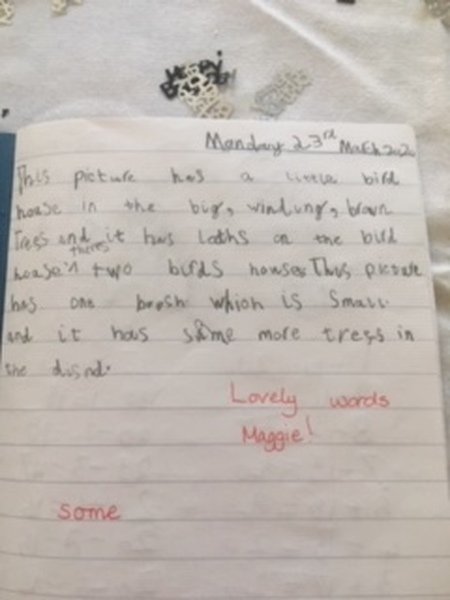 Manday 23rd MaEh 202
This picture has a little bird
house in the big, windung, brown
Trees and it has loths on the bird
theres
house's two birds houses This picture
has one brosh which is small.
and it has some more tress in
the disnd.
Lovely words
Maggie!
some